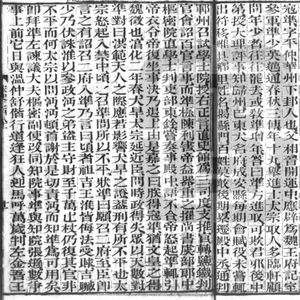 寇準字平仲華州下邽人也父相晉開運中應辟爲魏王府記室
參軍準少英邁通春秋三傳年十九舉進士太宗取人多臨軒顧
問年少者往往罷去或教準增年答曰準方進取可欺君邪後中
第授大理評事知歸州巴東大名府成安縣每期會賦役未嘗輒出符
移唯具鄉里姓名揭縣門百姓莫敢後期累遷殿中丞通判
鄆州召試學士院授右正言直史館爲三司度支推官轉鹽鐵判
官會詔百官言事而準極陳利害帝益器重之擢尚書虞部郎中
樞密院直學士判吏部東銓嘗奏事殿中語不合帝怒起準輒引
帝衣令帝復坐事決乃退上由是嘉之曰朕得寇準猶文皇之得
魏徵也淳化二年春大旱太宗延近臣問時政得失衆以天數對
準對曰洪範天人之際應若影響大旱之證蓋刑有所不平也太
宗怒起入禁中頃之召準問所以不平狀準曰願召二府至臣即言
之有詔召二府入準乃言曰頃者祖吉王淮皆侮法受賕吉贓
少乃伏誅淮以參政沔之弟盜主守財至千萬止杖仍復其官非
不平而何太宗以問沔沔頓首謝於是切責沔而知準爲可用矣
即拜準左諫議大夫樞密副使改同知院事準與知院張遜數爭
事上前他日與溫仲舒偕行道逢狂人迎馬呼萬歲判左金吾王